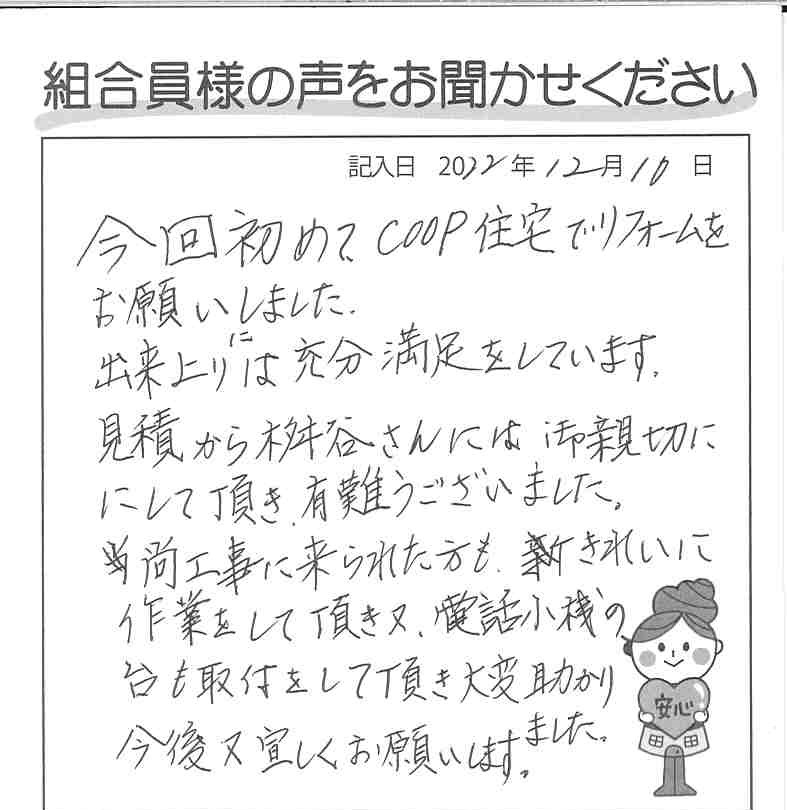 組合員様の声をお聞かせください
記入日 2022年12月10日
今回初めて、COOP住宅でリフォームを
お願いしました.
出来上りには充分満足をしています.
見積から桝谷さんには御親切に
にして頂き、有難うございました。
尚工事に来られた方も、きれいに
作業をして頂き又、電話小機の
台も取付をして頂き大変助かり
ました。
今後又宜しくお願いします。
安心